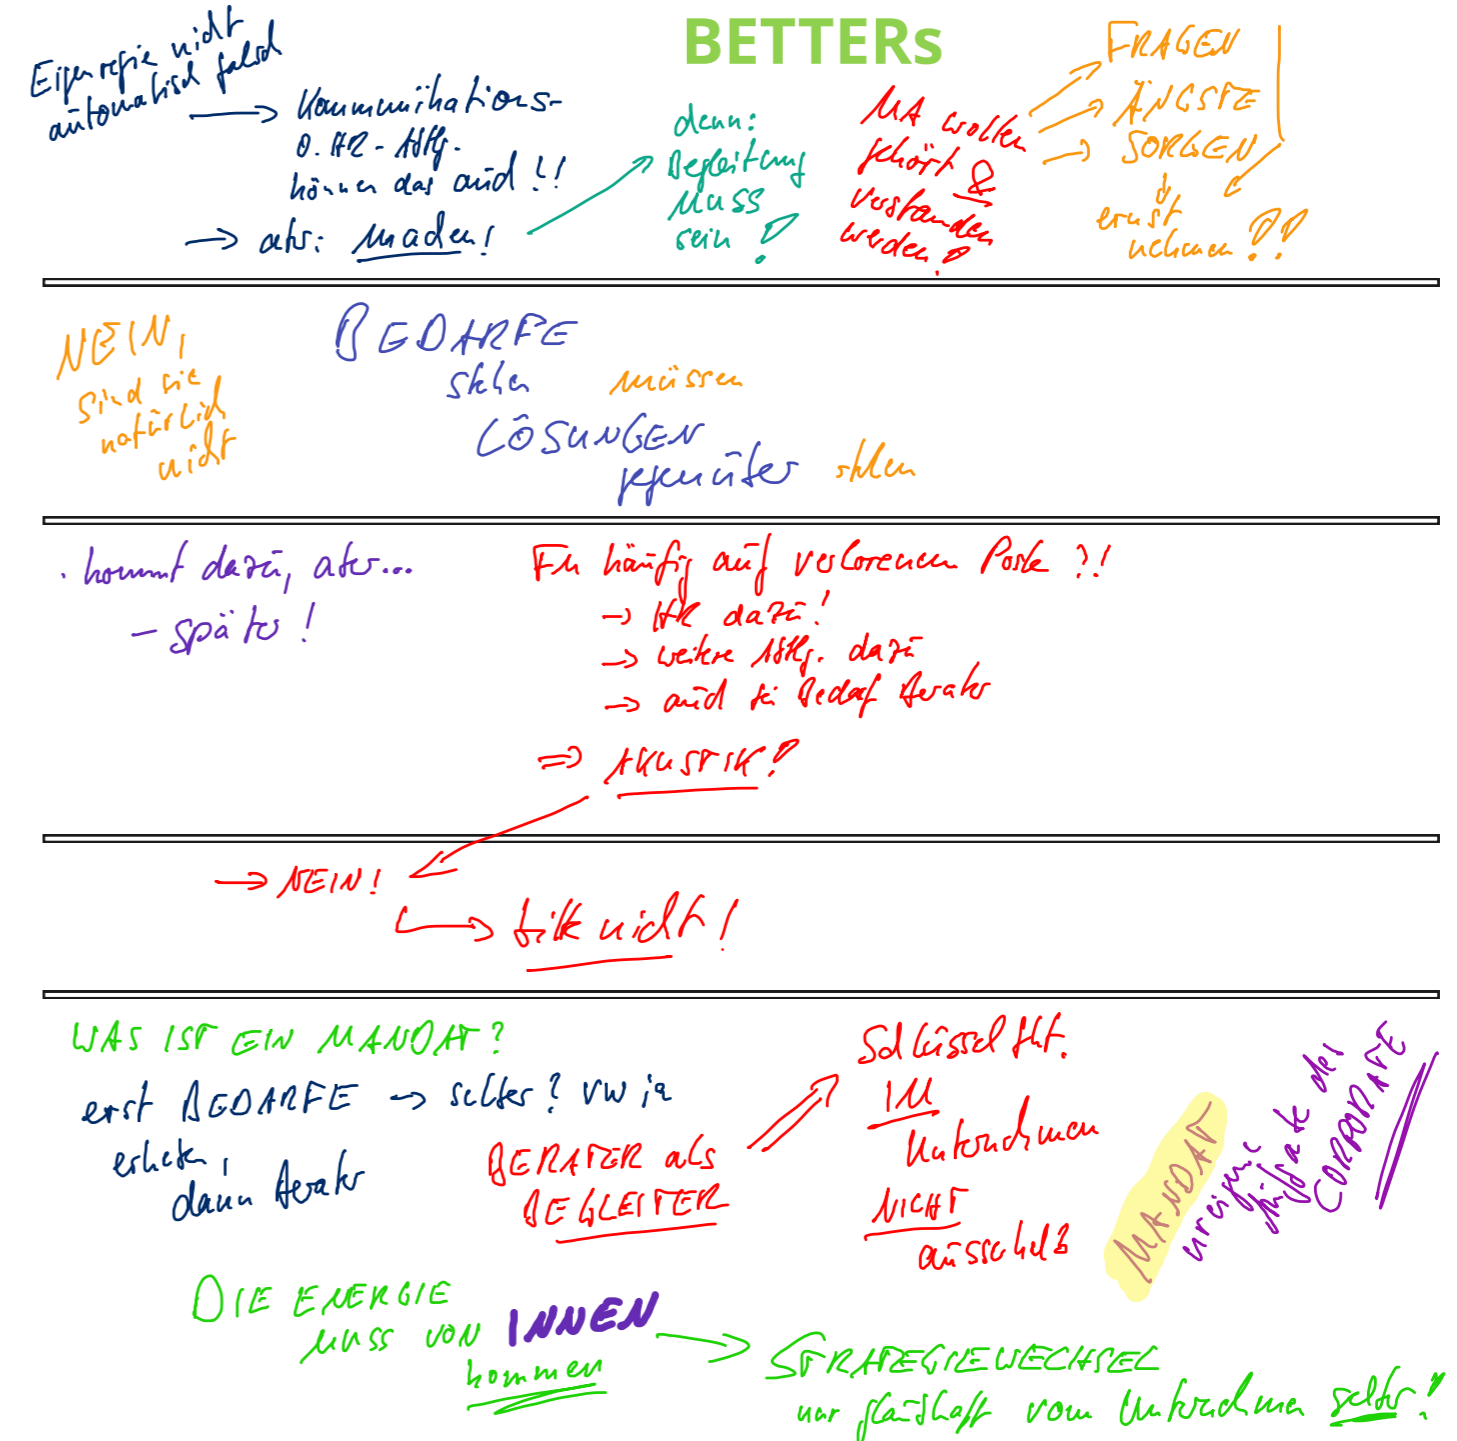 BETTERs
Eigenregie nicht
automatisch falsch
→ Kommunikations-
o. HR-Abtlg.
können das auch!!
→ aber: machen!
denn:
Begleitung
MUSS
sein!
MA wollen
gehört &
verstanden
werden!
FRAGEN
ÄNGSTE
SORGEN
ernst
nehmen!!
NEIN,
sind sie
natürlich
nicht
BEDARFE
stehen müssen
LÖSUNGEN
gegenüber stehen
. kommt dazu, aber...
- später!
FK häufig auf verlorenem Posten ?!
→ HR dazu!
→ weitere Abtlg. dazu
→ auch bei Bedarf Berater
⇒ AKUSTIK!
→ NEIN!
→ bitte nicht!
WAS IST EIN MANDAT?
erst BEDARFE → selber?
erheben,
dann Berater
BERATER als
BEGLEITER
Schlüssel
IM
Unternehmen
NICHT
MANDAT
ureigene
Aufgabe der
CORPORATE
DIE ENERGIE
MUSS VON INNEN
kommen
STRATEGIEWECHSEL
nur glaubhaft vom Unternehmen selber!